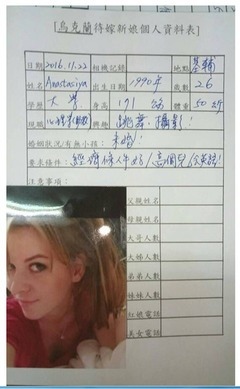 [烏克蘭待嫁新娘個人資料表]
日期 2016.11.22 相機記錄 地點 基輔
姓名 Anastasiya 出生日期 1990年 歲數 26
學歷 大學 身高 171 公分 體重 50 公斤
組職 心理 興趣 跳舞、攝影!
婚姻狀況/有無小孩: 未婚!
要求條件: 經濟條件好/高個兒/
注意事項:
父親姓名
母親姓名
大哥人數
大姊人數
弟弟人數
妹妹人數
紅娘電話
美女電話